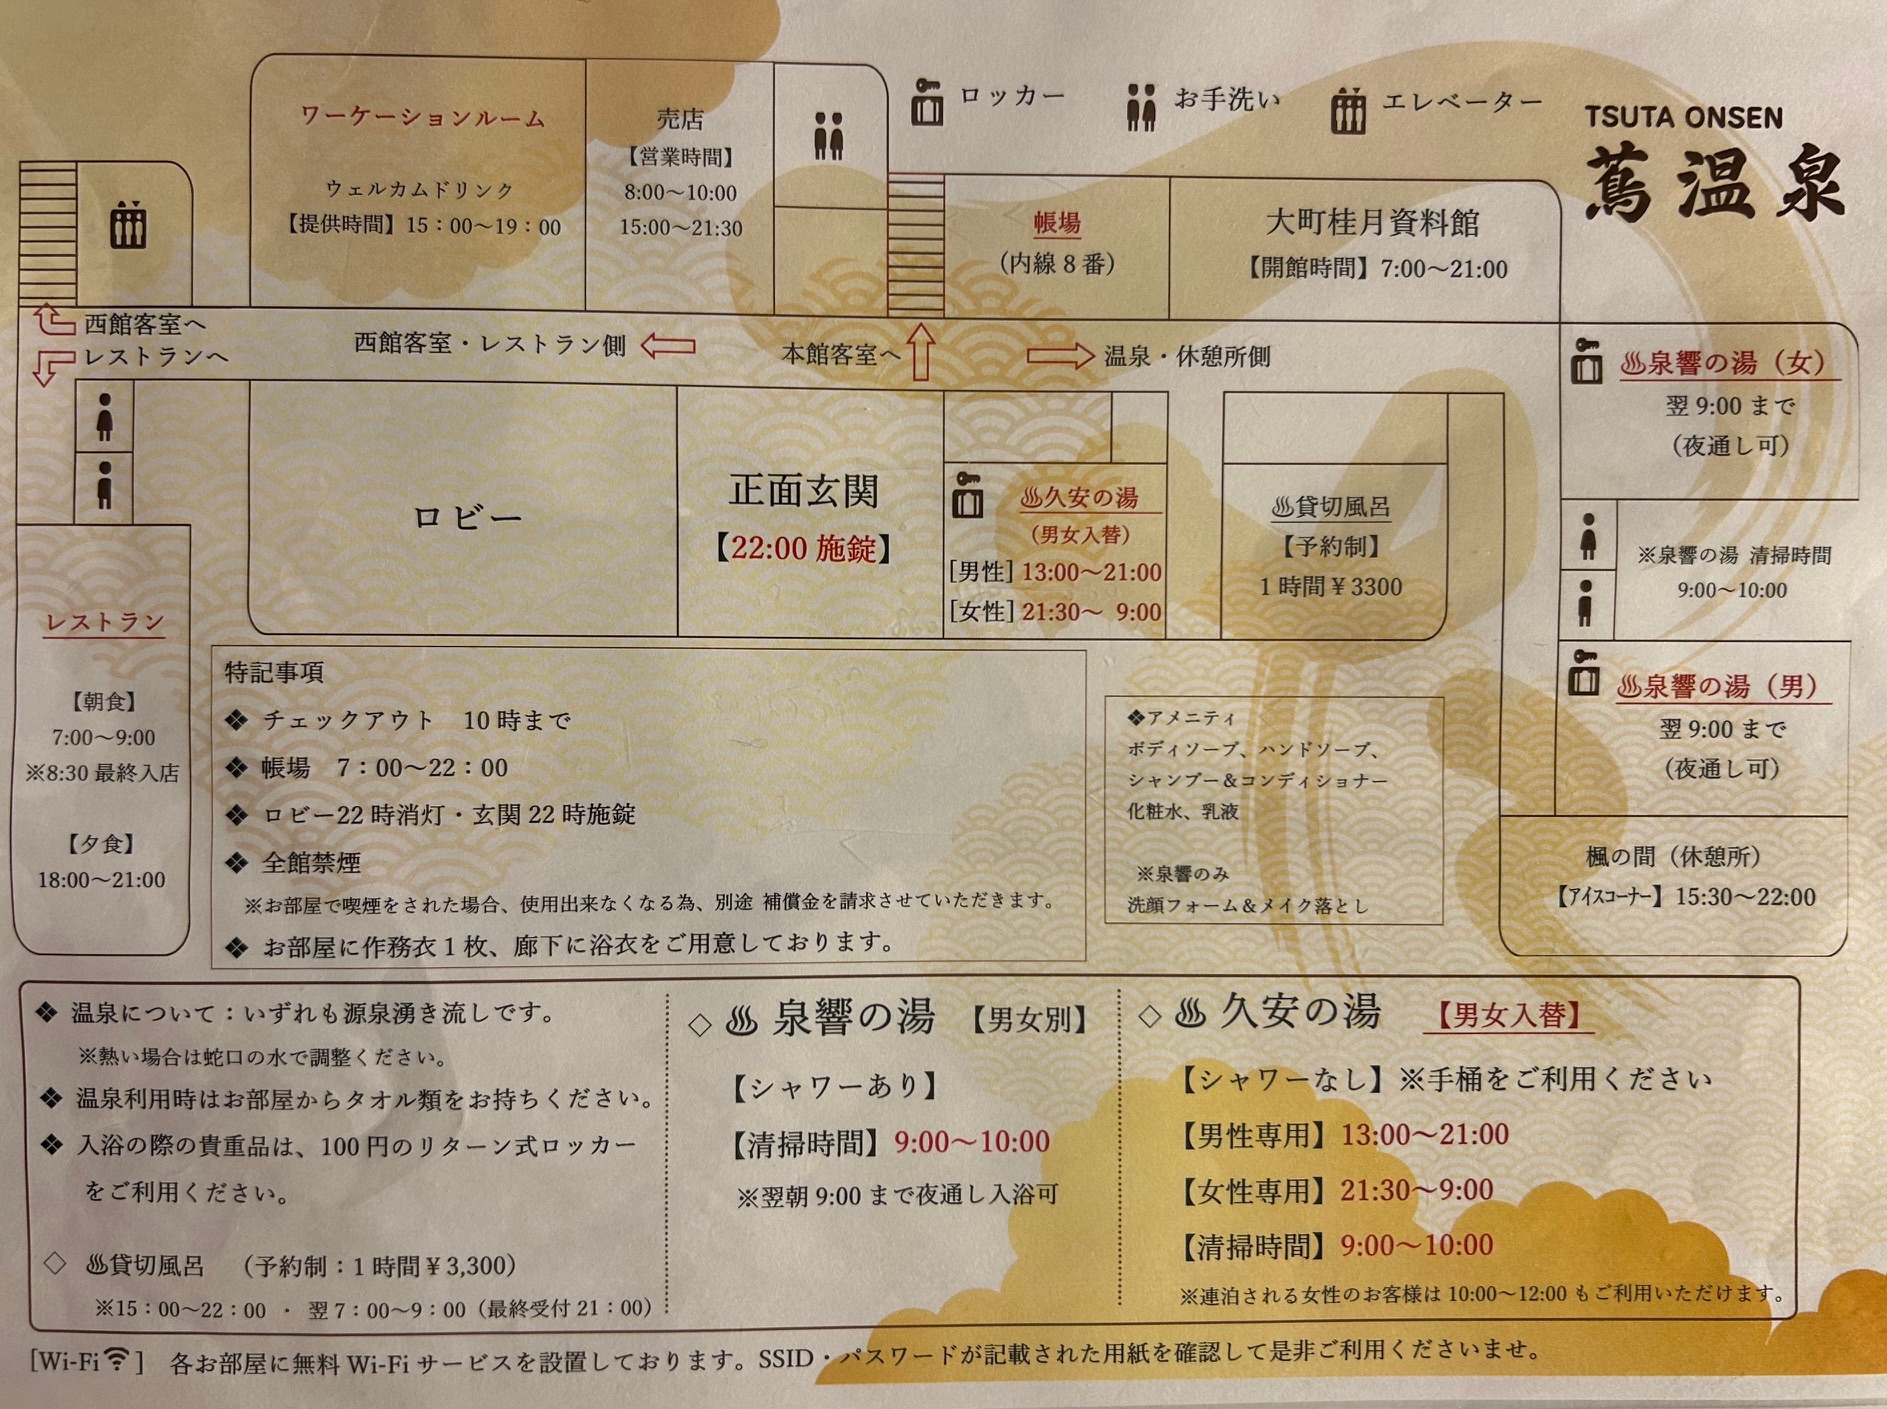 ロッカー
お手洗い
エレベーター
TSUTA ONSEN
蔦温泉
ワーケーションルーム
ウェルカムドリンク
【提供時間】15：00～19：00
売店
【営業時間】
8:00～10:00
15:00～21:30
帳場
(内線8番)
大町桂月資料館
【開館時間】7:00～21:00
西館客室へ
レストランへ
西館客室・レストラン側
本館客室へ
温泉・休憩所側
♨泉響の湯（女）
翌9:00まで
（夜通し可）
ロビー
正面玄関
【22:00施錠】
♨久安の湯
（男女入替）
[男性] 13:00～21:00
[女性] 21:30～ 9:00
♨貸切風呂
【予約制】
1時間¥3300
※泉響の湯 清掃時間
9:00～10:00
♨泉響の湯（男）
翌9:00まで
（夜通し可）
楓の間（休憩所）
【アイスコーナー】15:30～22:00
レストラン
【朝食】
7:00～9:00
※8:30最終入店
【夕食】
18:00～21:00
特記事項
❖ チェックアウト　10時まで
❖ 帳場　7：00～22：00
❖ ロビー22時消灯・玄関22時施錠
❖ 全館禁煙
※お部屋で喫煙をされた場合、使用出来なくなる為、別途 補償金を請求させていただきます。
❖ お部屋に作務衣1枚、廊下に浴衣をご用意しております。
❖アメニティ
ボディソープ、ハンドソープ、
シャンプー＆コンディショナー
化粧水、乳液
※泉響のみ
洗顔フォーム＆メイク落とし
❖ 温泉について：いずれも源泉湧き流しです。
※熱い場合は蛇口の水で調整ください。
❖ 温泉利用時はお部屋からタオル類をお持ちください。
❖ 入浴の際の貴重品は、100円のリターン式ロッカー
をご利用ください。
◇ ♨貸切風呂　（予約制：1時間¥3,300）
※15：00～22：00 ・ 翌7：00～9：00（最終受付21：00）
◇ ♨ 泉響の湯 【男女別】
【シャワーあり】
【清掃時間】9:00～10:00
※翌朝9:00まで夜通し入浴可
◇ ♨ 久安の湯 【男女入替】
【シャワーなし】※手桶をご利用ください
【男性専用】13:00～21:00
【女性専用】21:30～9:00
【清掃時間】9:00～10:00
※連泊される女性のお客様は10:00～12:00もご利用いただけます。
[Wi-Fi] 各お部屋に無料Wi-Fiサービスを設置しております。SSID・パスワードが記載された用紙を確認して是非ご利用くださいませ。